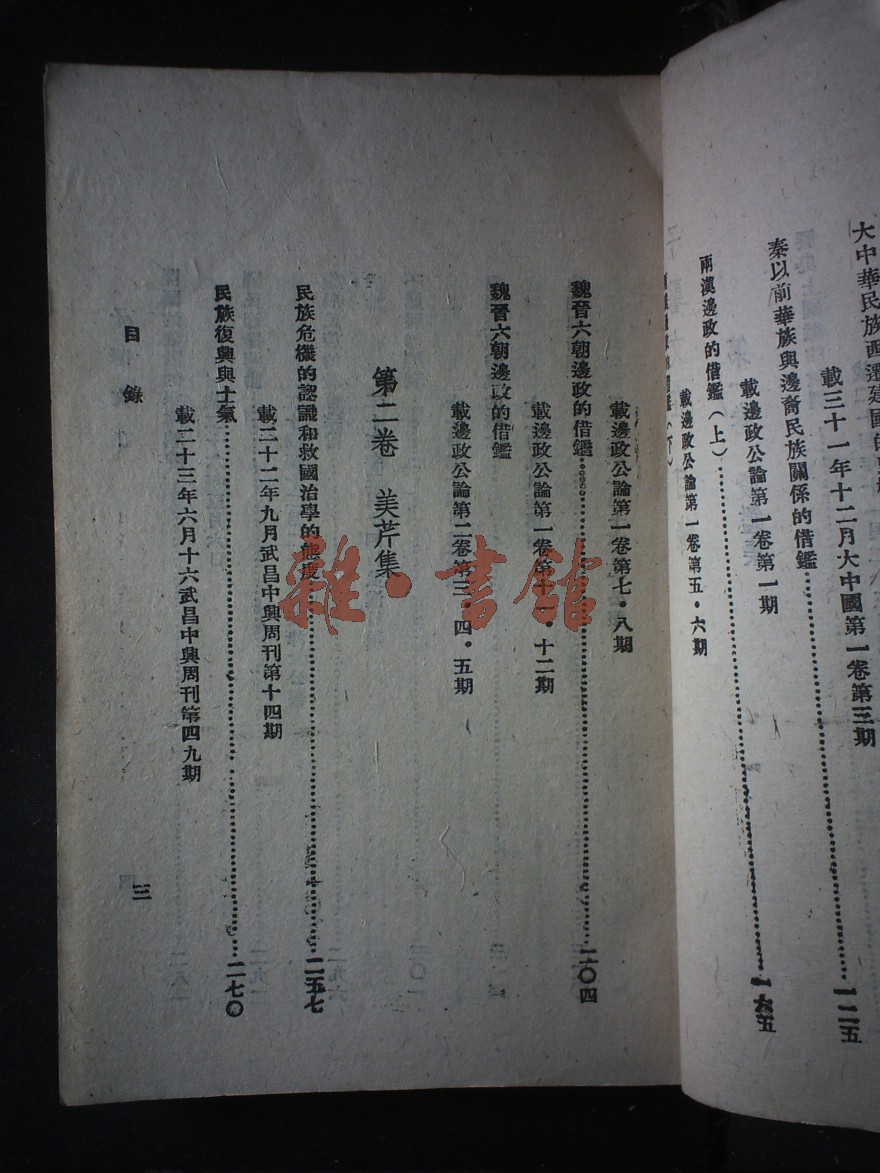 大中華民族西遷建國的
載三十一年十二月大中國第一卷第三期
一二五
秦以前華族與邊裔民族關係的借鑑
載邊政公論第一卷第一期
一六五
兩漢邊政的借鑑（上）
載邊政公論第一卷第五・六期
載邊政公論第一卷第七・八期
魏晉六朝邊政的借鑑
二〇四
載邊政公論第一卷第十一・十二期
魏晉六朝邊政的借鑑
載邊政公論第二卷第三・四・五期
第二卷　美芹集
民族危機的認識和救國治學的態度
二五七
載二十二年九月武昌中興周刊第十四期
民族復興與士氣
二七〇
載二十三年六月十六武昌中興周刊第四九期
目錄
三
雜・書館